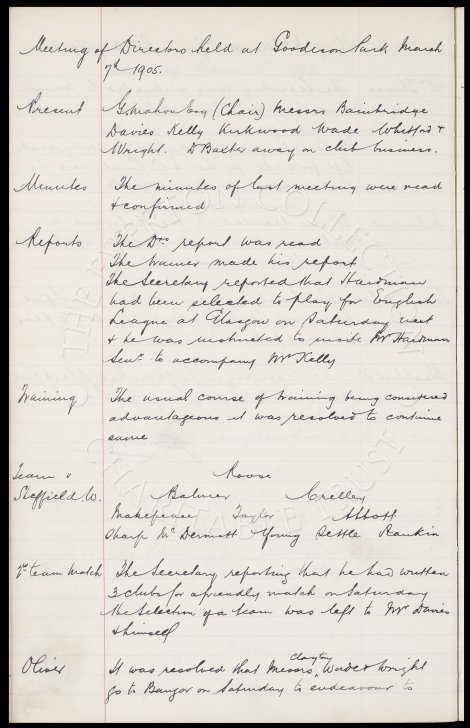 Meeting of Directors held at Goodison Park March
7th 1905.
Present G. Mahon Esq (Chair) Messrs Bainbridge
Davies Kelly Kirkwood Wade Whitford &
Wright. Dr Baxter away on club business.
Minutes The minutes of last meeting were read
& confirmed
Reports The Drs report was read
The trainer made his report
The Secretary reported that Hardman
had been selected to play for English
League at Glasgow on Saturday next
& he was instructed to invite Mr Hardman
Senr to accompany Mr Kelly
Training The usual course of training being considered
advantageous it was resolved to continue
same
Team v
Sheffield W.
Roose
Balmer Crelley
Makepeace Taylor Abbott
Sharp McDermott Young Settle Rankin
2nd team Match The Secretary reporting that he had written
3 clubs for a friendly match on Saturday
the selection of a team was left to Mr Davies
& himself
Oliver It was resolved that Messrs Clayton, Wade & Wright
go to Bangor on Saturday to endeavour to
THE EVERTON COLLECTION
CHARITABLE TRUST